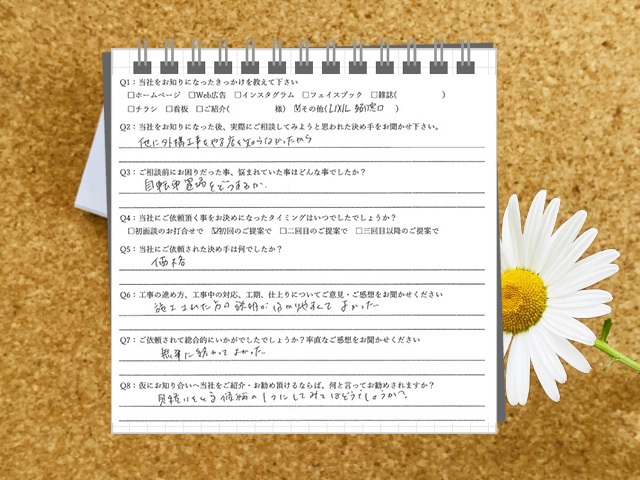 Q1：当社をお知りになったきっかけを教えて下さい
□ホームページ □Web広告 □インスタグラム □フェイスブック □雑誌( )
□チラシ □看板 □ご紹介( 様) ☑その他(LIXIL 窓口 )
Q2：当社をお知りになった後、実際にご相談してみようと思われた決め手をお聞かせ下さい。
他に外構工事をやる店を知らなかったから
Q3：ご相談前にお困りだった事、悩まれていた事はどんな事でしたか？
自転車置場をどうするか.
Q4：当社にご依頼頂く事をお決めになったタイミングはいつでしたでしょうか？
□初面談のお打合せで ☑初回のご提案で □二回目のご提案で □三回目以降のご提案で
Q5：当社にご依頼された決め手は何でしたか？
価格
Q6：工事の進め方、工事中の対応、工期、仕上りについてご意見・ご感想をお聞かせください
施工された方の説明が分かりやすくてよかった
Q7：ご依頼されて総合的にいかがでしたでしょうか？率直なご感想をお聞かせください
無事に終わってよかった
Q8：仮にお知り合いへ当社をご紹介・お勧め頂けるならば、何と言ってお勧めされますか？
見積りをとる候補の1つにしてみてはどうでしょうか?